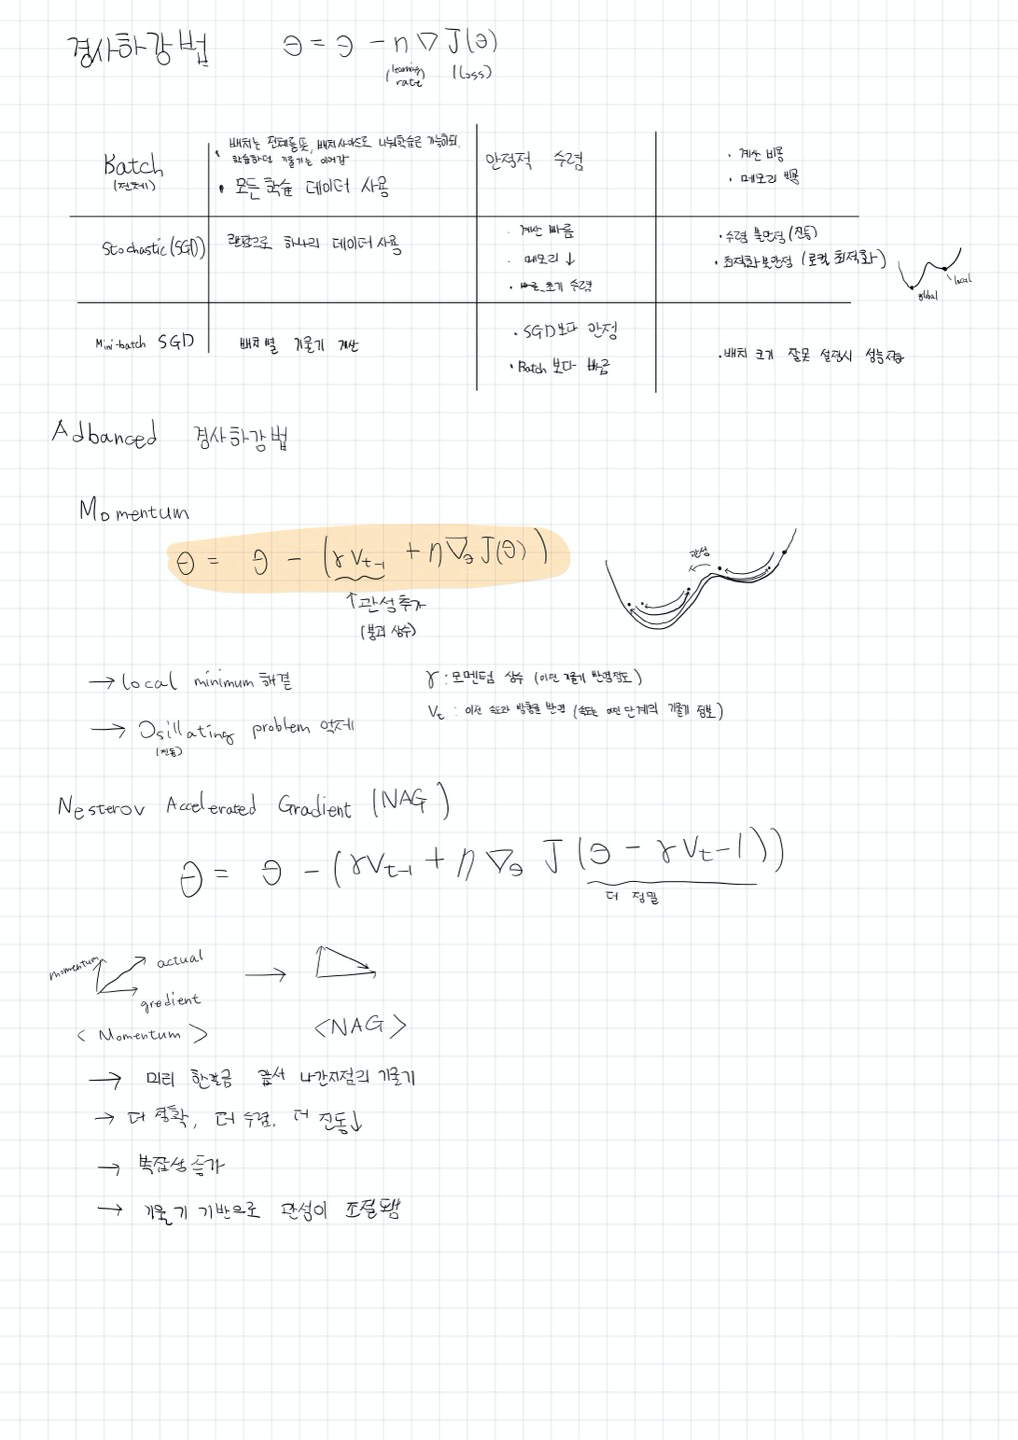 경사하강법 θ = θ - η ∇ J(θ)
(learning rate) (loss)
Batch
(전체)
· 배치는 전체를 뜻, 배치사이즈로 나눠학습은 가능하되,
학습하던 기울기는 이어감
· 모든 학습 데이터 사용
안정적 수렴
· 계산 비용
· 메모리 비용
Stochastic (SGD)
랜덤으로 하나의 데이터 사용
· 계산 빠름
· 메모리 ↓
· 빠른 초기 수렴
· 수렴 불안정 (진동)
· 최적화 불안정 (로컬 최적화)
local
global
Mini-batch SGD
배치별 기울기 계산
· SGD보다 안정
· Batch 보다 빠름
· 배치 크기 잘못 설정시 성능저하
Adbanced 경사하강법
Momentum
θ = θ - (γVt-1 + η∇θJ(θ))
관성
↑관성추가
(붕괴 상수)
→ local minimum 해결
γ : 모멘텀 상수 (이전 기울기 반영정도)
Vt : 이전 속도와 방향을 반영 (속도는 이전 단계의 기울기 정보)
→ Osillating problem 억제
(진동)
Nesterov Accelerated Gradient (NAG)
θ = θ - (γVt-1 + η ∇θ J (θ - γVt-1))
더 정밀
momentum actual →
gredient
< Momentum > <NAG>
→ 미리 한발금 앞서 나간지점의 기울기
→ 더 정확, 더 수렴, 더 진동↓
→ 복잡성 증가
→ 기울기 기반으로 관성이 조절됨